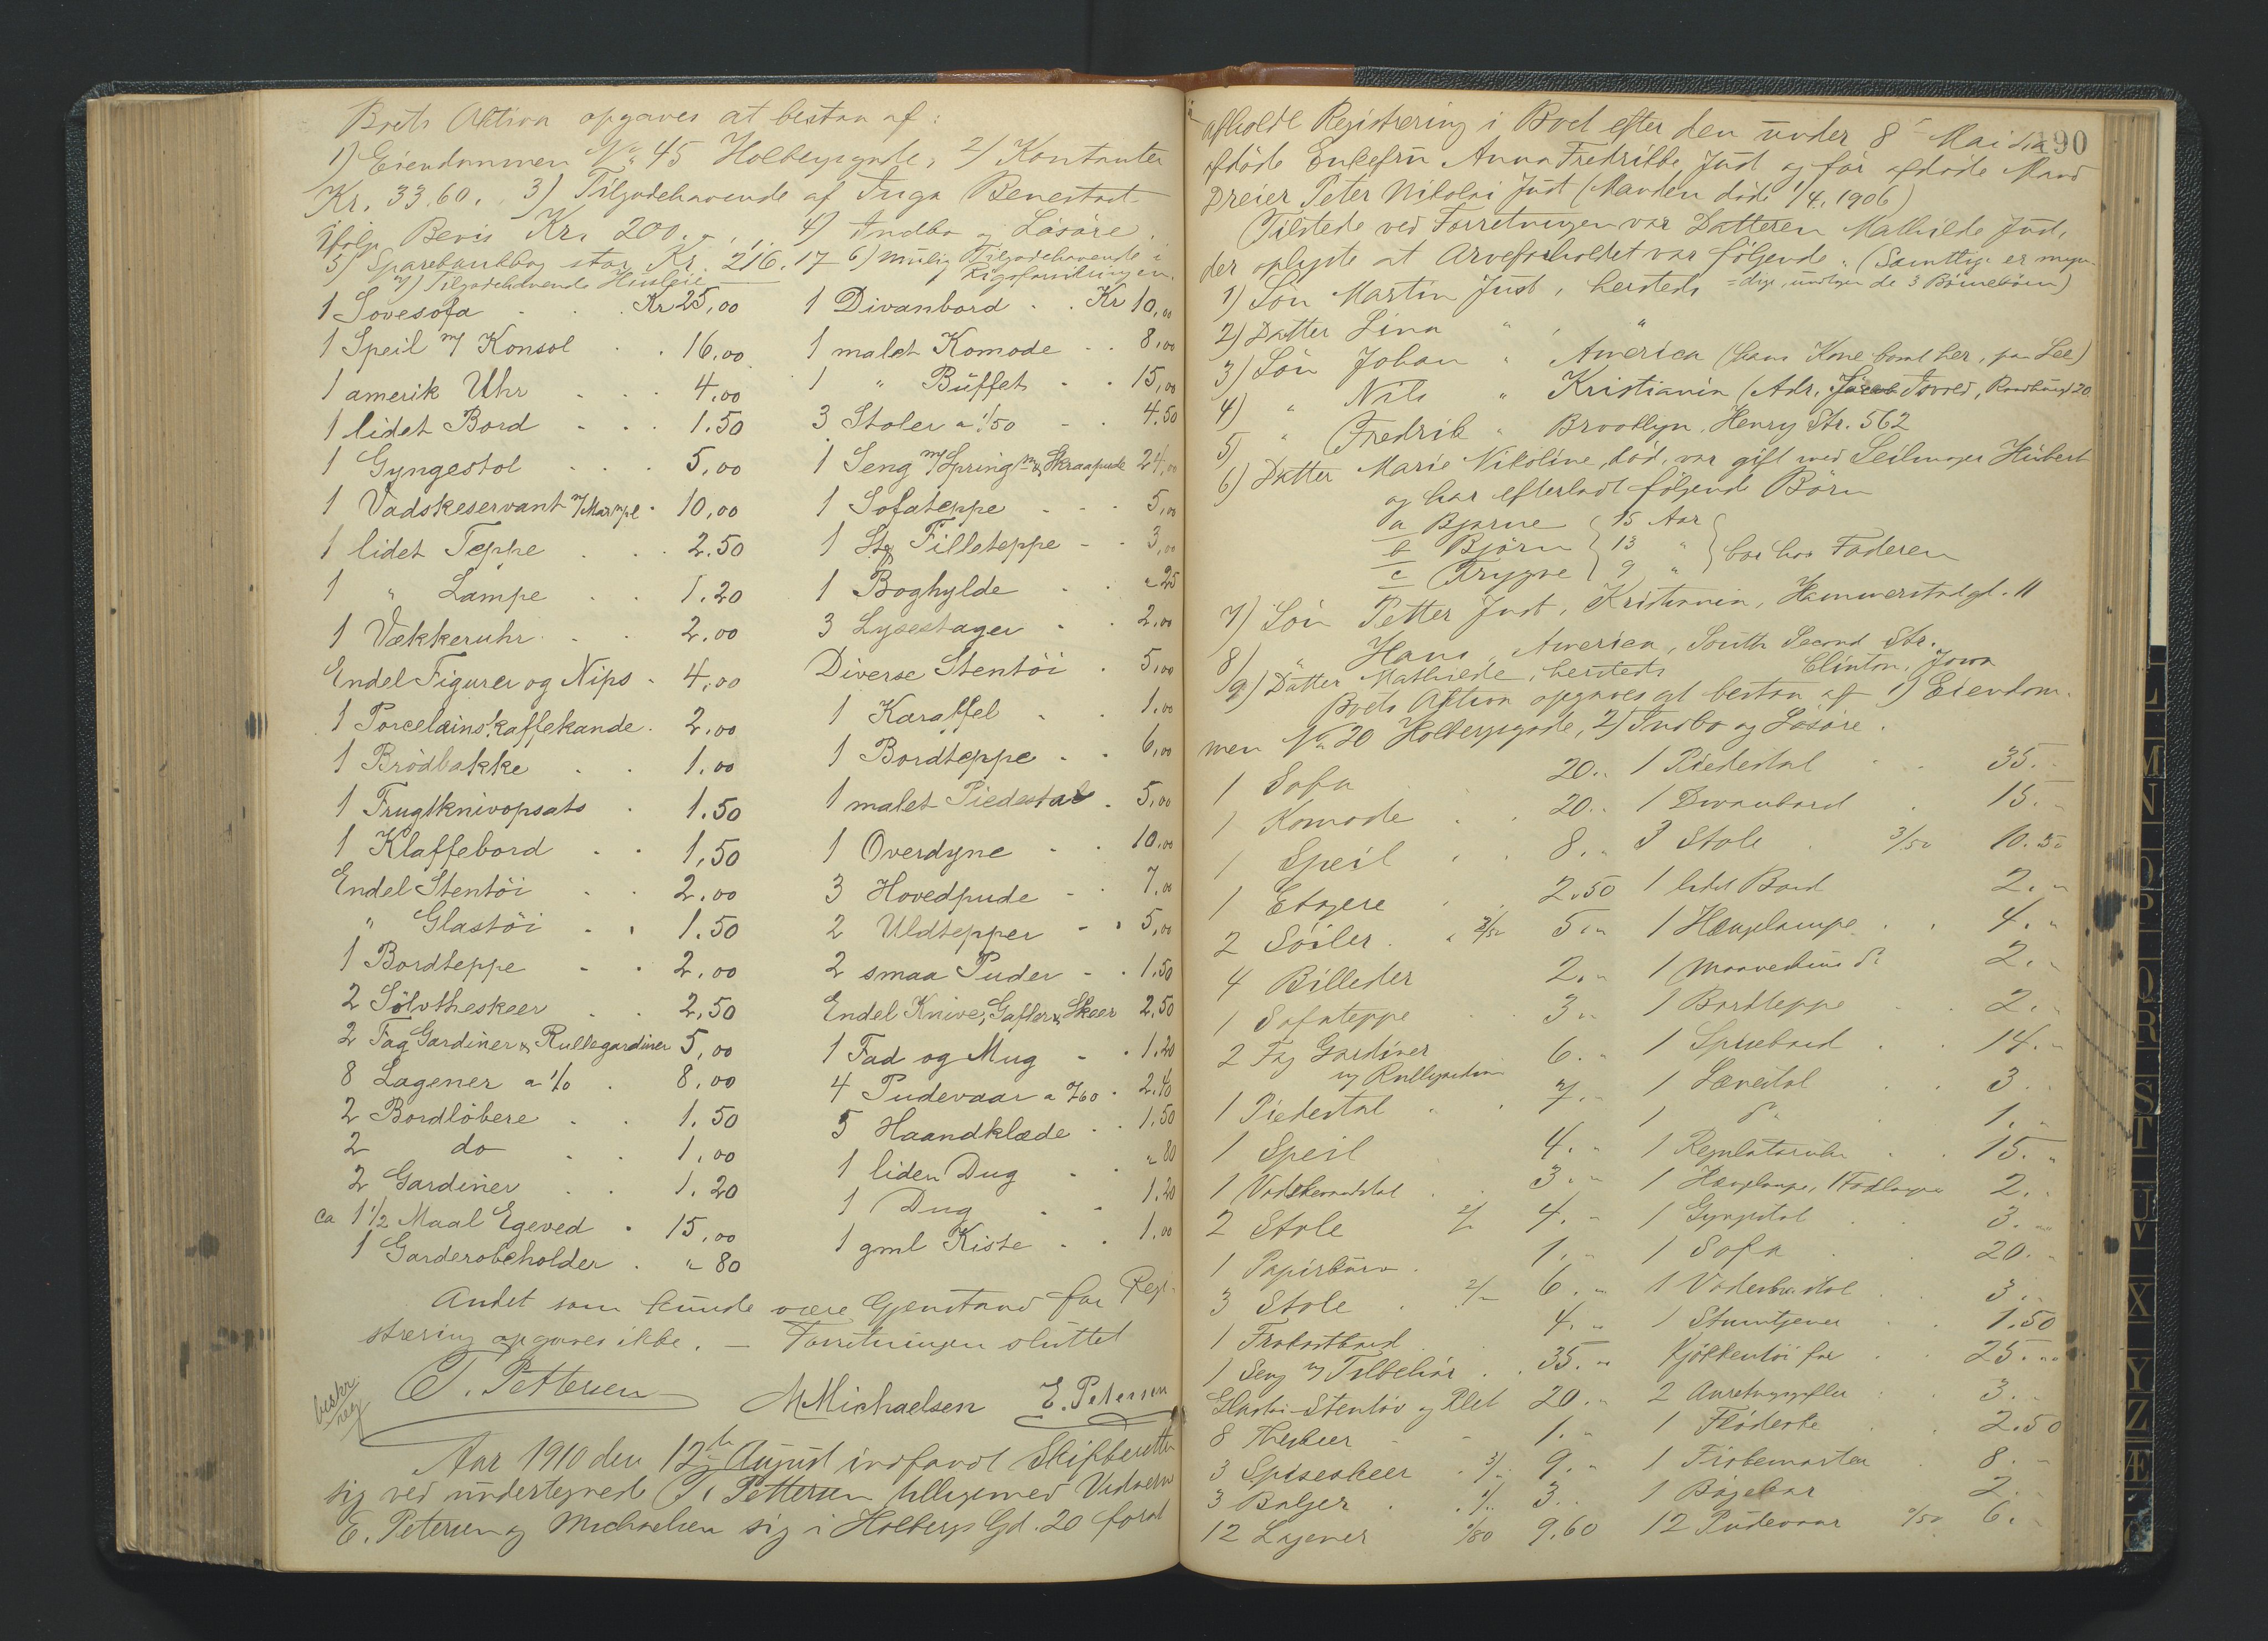 Boets Aktiva opgaves at bestaa af:
1) Eiendommen No 45 Holbergsgade, 2) Kontanter
Kr. 33.60. 3) Tilgodehavende af Inga Benestad
ifølge Bevis Kr. 200.-, 4) Indbo og Løsøre.
5) Sparebankbog stor Kr. 216.17 6) mulig Tilgodehavende i
7) Tilgodehavende Husleie Rigsforsikringen.
1 Sovesofa Kr 25,00
1 Speil m/ Konsol 16.00
1 amerik Uhr 4,00
1 lidet Bord 1.50
1 Gyngestol 5,00
1 Vadskeservant m/Marmpl 10,00
1 lidet Teppe 2.50
1 " Lampe 1.20
1 Vækkeruhr 2.00
Endel Figurer og Nips 4,00
1 Porcelainskaffekande 2,00
1 Brödbakke 1.00
1 Frugtknivopsats 1.50
1 Klaffebord 1,50
Endel Stentöi 2.00
" Glastöi 1.50
1 Bordteppe 2,00
2 Sölvtheskeer 2,50
2 Fag Gardiner & Rullegardiner 5,00
8 Lagener a 1/0 8,00
2 Bordlöbere 1.50
2 do 1,00
2 Gardiner 1.20
ca 1 1/2 Maal Egeved 15,00
1 Garderobeholder " 80
1 Divanbord Kr 10,00
1 malet Komode 8,00
1 " Büffet 15,00
3 Stoler a 1/50 4.50
1 Seng m/Spring m & Skraapude 24,00
1 Sofateppe 5,00
1 Stg Filleteppe 3,00
1 Boghylde " 25
3 Lysestager 2,00
Diverse Stentöi 5,00
1 Karaffel 1.00
1 Bordteppe 6,00
1 malet Piedestal 5,00
1 Overdyne 10.00
3 Hovedpude 7.00
2 Uldtepper 5,00
2 smaa Puder 1.50
Endel Knive, Gafler & Skeer 2,50
1 Fad og Mug 1.20
4 Pudevaar a "/60 2.40
5 Haandklæde 1,50
1 liden Dug " 80
1 Dug 1.20
1 gml Kiste 1.00
Andet som kunde være Gjenstand for Regi-
strering opgaves ikke. — Forretningen sluttet
T. Pettersen M Michaelsen E. Petersen
beskr.
Aar 1910 den 12te August indfandt Skifteretten
sig ved undertegnede T. Pettersen tilligemed Vidnerne
E. Petersen og Michaelsen sig i Holbergs Gd. 20 forat
190
afholde Registrering i Boet efter den under 8de Mai d.a.
afdöde Enkefru Anna Fredrikke Just og för afdöde Mand
Dreier Peter Nikolai Just (Manden döde 1/4. 1906)
Tilstede ved Forretningen var Datteren Mathilde Just,
der oplyste at Arveforholdet var fölgende: (Samtlige er myn-
1) Sön Martin Just, hersteds =dige, undtagen de 3 Börnebörn)
2) Datter Lina " , "
3) Sön Johan " America (hans Kone bor her, paa Lee)
4) " Nils " Kristiania (Adr. Torvld, Raadhusgd 20
5) " Fredrik " Brooklyn, Henry Str. 562
6) Datter Marie Nikoline, död, var gift med Seilmager Hubert
og har efterladt fölgende Börn
a Bjarne 15 Aar
b Björn 13 "
c Trygve 9 " bor hos Faderen
7) Sön Petter Just, Kristiania, Hammerstadgd. 11
8) " Hans, America, South Second Str.
Clinton, Iowa
9) Datter Mathilde, hersteds
Boets Aktiva opgaves at bestaa af 1) Eiendom-
men No 20 Holbergsgade, 2) Indbo og Lösöre.
1 Sofa 20.-
1 Komode 20.-
1 Speil 8.-
1 Etagere 2.50
2 Söiler 5.-
4 Billeder 2.-
1 Sofateppe 3.-
2 Fag Gardiner 6.-
og Rullegardin
1 Piedestal 7.-
1 Speil 4.-
1 Vadskevandstol 3.-
2 Stole 2/- 4.-
1 Papirkurv 1.-
3 Stole 2/- 6.-
1 Frokostbord 4.-
1 Seng og Tilbehör 35.-
Glastöi-Stentöi og Plet 20.-
8 Theskeer 1.-
3 Spiseskeer 3/- 9.-
3 Baljer 1/- 3.-
12 Lagener "/80 9.60
1 Piedestal 35.-
1 Divanbord 15.-
3 Stole 3/50 10.50
1 lidet Bord 2.-
1 Hænglampe 4.-
1 do 2.-
1 Bordteppe 2.-
1 Spisebord 14.-
1 Lænestol 3.-
1 do 1.-
1 Regulatoruhr 15.-
1 Hænglampe, 1 Fodlampe 2.-
1 Gyngestol 3.-
1 Sofa 20.-
1 3.-
1 Stumtjener 1.50
Kjökkentöi for 25.-
2 3.-
1 Flödeske 2.50
1 8.-
1 2.-
12 Pudevaar "/50 6.-
L
M
N
O
P
Q
R
S
T
U
V
X
Y
Z
Æ